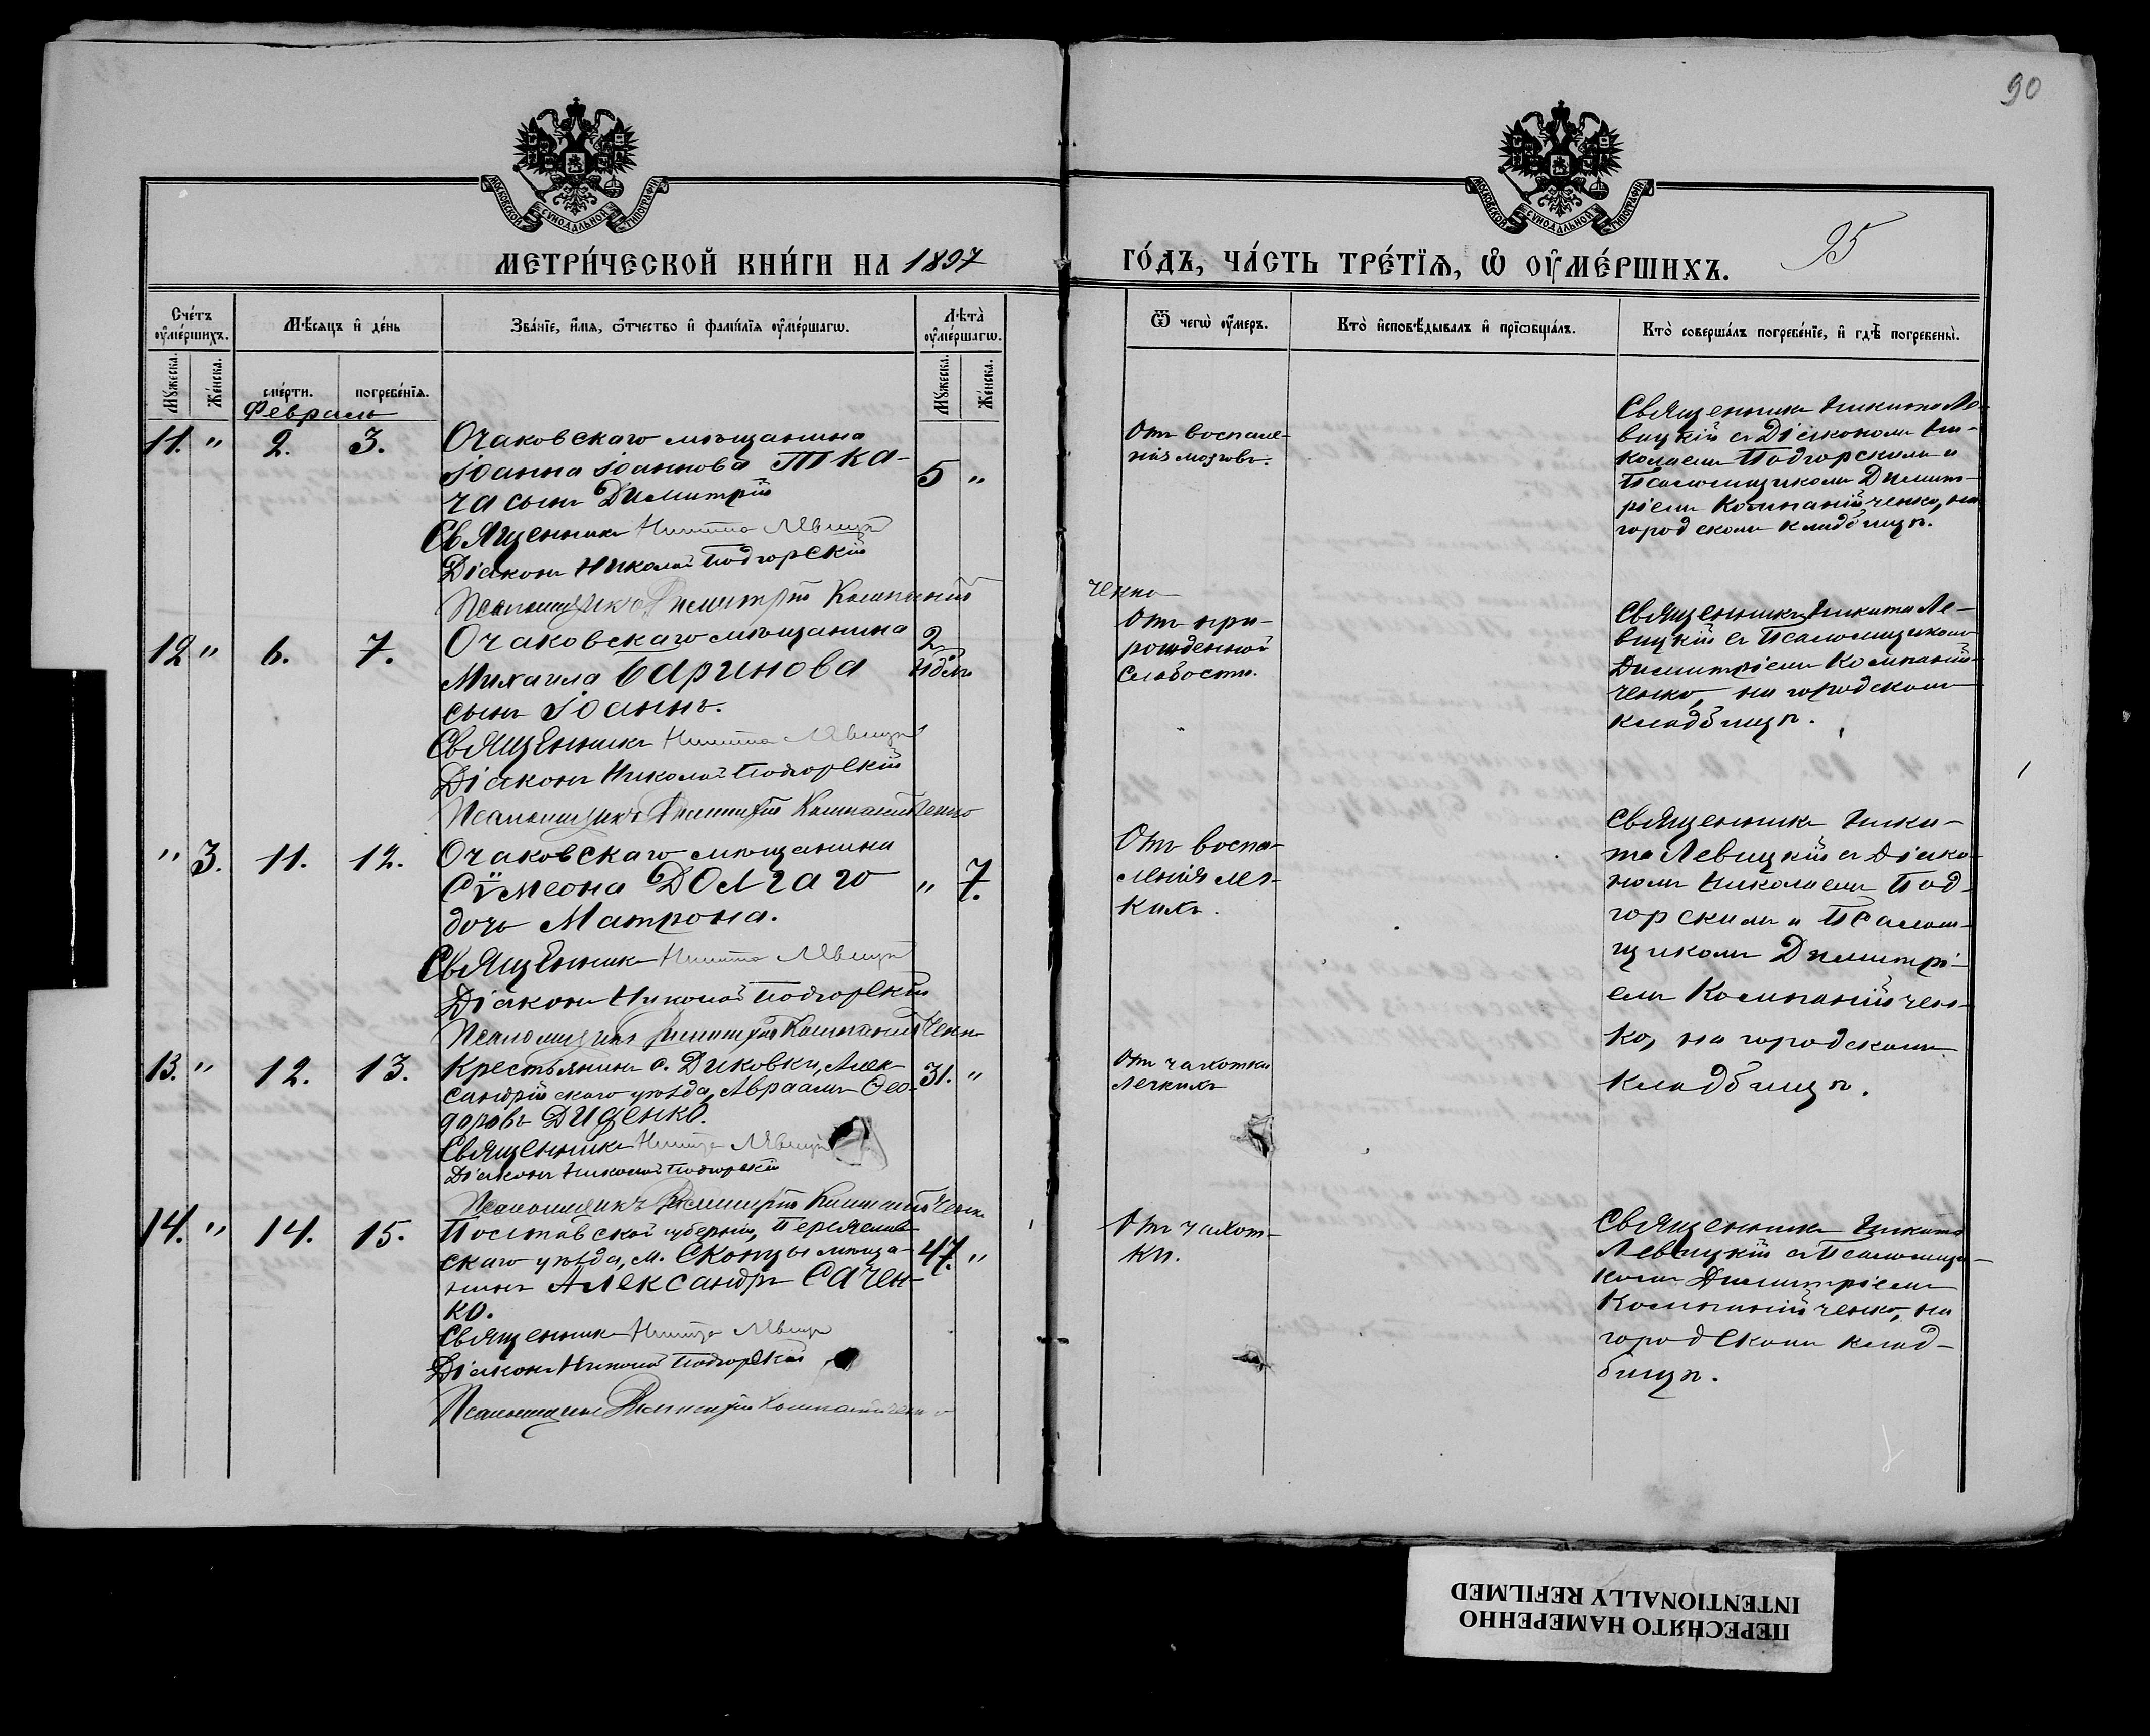 90
МОСКОВСКОЙ СѴНОДАЛЬНОЙ ТИПОГРАФІИ
МОСКОВСКОЙ СѴНОДАЛЬНОЙ ТИПОГРАФІИ
МЕТРИ́ЧЕСКОЙ КНИ́ГИ НА 1897
ГО́ДЪ, ЧА́СТЬ ТРЕ́ТІѦ, Ѽ ОУ҆МЕ́РШИХЪ.
95
Сче́тъ оу҆ме́ршихъ.
Мѣ́сяцъ и҆ де́нь
Зва́нїе, и҆́мя, ѻ҆́тчество и҆ фами́лїя оу҆ме́ршагѡ.
Лѣта̀ оу҆ме́ршагѡ.
Мꙋжеска.
Же́нска.
сме́рти.
погребе́нїѧ.
Мꙋжеска.
Же́нска.
Ѿ чегѡ̀ оу҆́меръ.
Кто̀ и҆сповѣ́дывалъ и҆ прїѡбща́лъ.
Кто̀ соверша́лъ погребе́нїе, и҆ гдѣ̀ погребены̀.
Февраль
11. " 2. 3.
Очаковскаго мѣщанина
Іоанна Іоаннова Тка-
ча сынъ Димитрій
5 "
Священникъ Никита Левицкій
Діаконъ Николай Подгорскій
Псаломщикъ Димитрій Компаній
ченко
Отъ воспале-
нія мозговъ.
Священникъ Никита Ле-
вицкій съ Діакономъ Ни-
колаемъ Подгорскимъ и
Псаломщикомъ Димит-
ріемъ Компанійченко, на
городскомъ кладбищѣ.
12 " 6. 7.
Очаковскаго мѣщанина
Михаила Баринова
сынъ Іоаннъ.
2
ндѣл.
Священникъ Никита Левицкій
Діаконъ Николай Подгорскій
Псаломщикъ Димитрій Компанійченко
Отъ при-
рожденной
слабости.
Священникъ Никита Ле-
вицкій съ Псаломщикомъ
Димитріемъ Компаній-
ченко, на городскомъ
кладбищѣ.
" 3. 11. 12.
Очаковскаго мѣщанина
Сѵмеона Долгаго
дочь Матрона.
" 7.
Священникъ Никита Левицкій
Діаконъ Николай Подгорскій
Псаломщикъ Димитрій Компанійченко
Отъ воспа-
ленія лег-
кихъ.
Священникъ Ники-
та Левицкій съ Діако-
номъ Николаемъ Под-
горскимъ и Псалом-
щикомъ Димитрі-
емъ Компанійчен-
ко, на городскомъ
кладбищѣ.
13. " 12. 13.
Крестьянинъ с. Диковки, Алек-
сандрійскаго уѣзда, Авраамъ Ѳео-
доровъ Диденко.
31. "
Священникъ Никита Левицкій
Діаконъ Николай Подгорскій
Псаломщикъ Димитрій Компанійченко
Отъ чахотки
легкихъ
14. " 14. 15.
Полтавской губерніи, Переяслав-
скаго уѣзда, м. Скопцы мѣща-
нинъ Александръ Сачен-
ко.
47. "
Священникъ Никита Левицкій
Діаконъ Николай Подгорскій
Псаломщикъ Димитрій Компанійченко
Отъ чахот-
ки.
Священникъ Никита
Левицкій съ Псаломщи-
комъ Димитріемъ
Компанійченко, на
городскомъ клад-
бищѣ.
ПЕРЕСНЯТО НАМЕРЕННО
INTENTIONALLY REFILMED